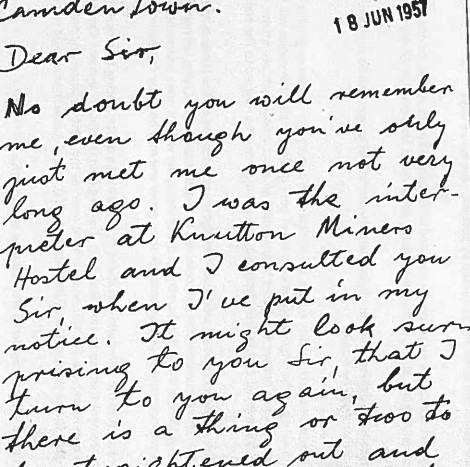 Camden Town.
18 JUN 1957
Dear Sir,
No doubt you will remember
me, even though you've only
just met me once not very
long ago. I was the inter-
preter at Knutton Miners
Hostel and I consulted you
Sir, when I've put in my
notice. It might look sur-
prising to you Sir, that I
turn to you again, but
there is a thing or two to
out and